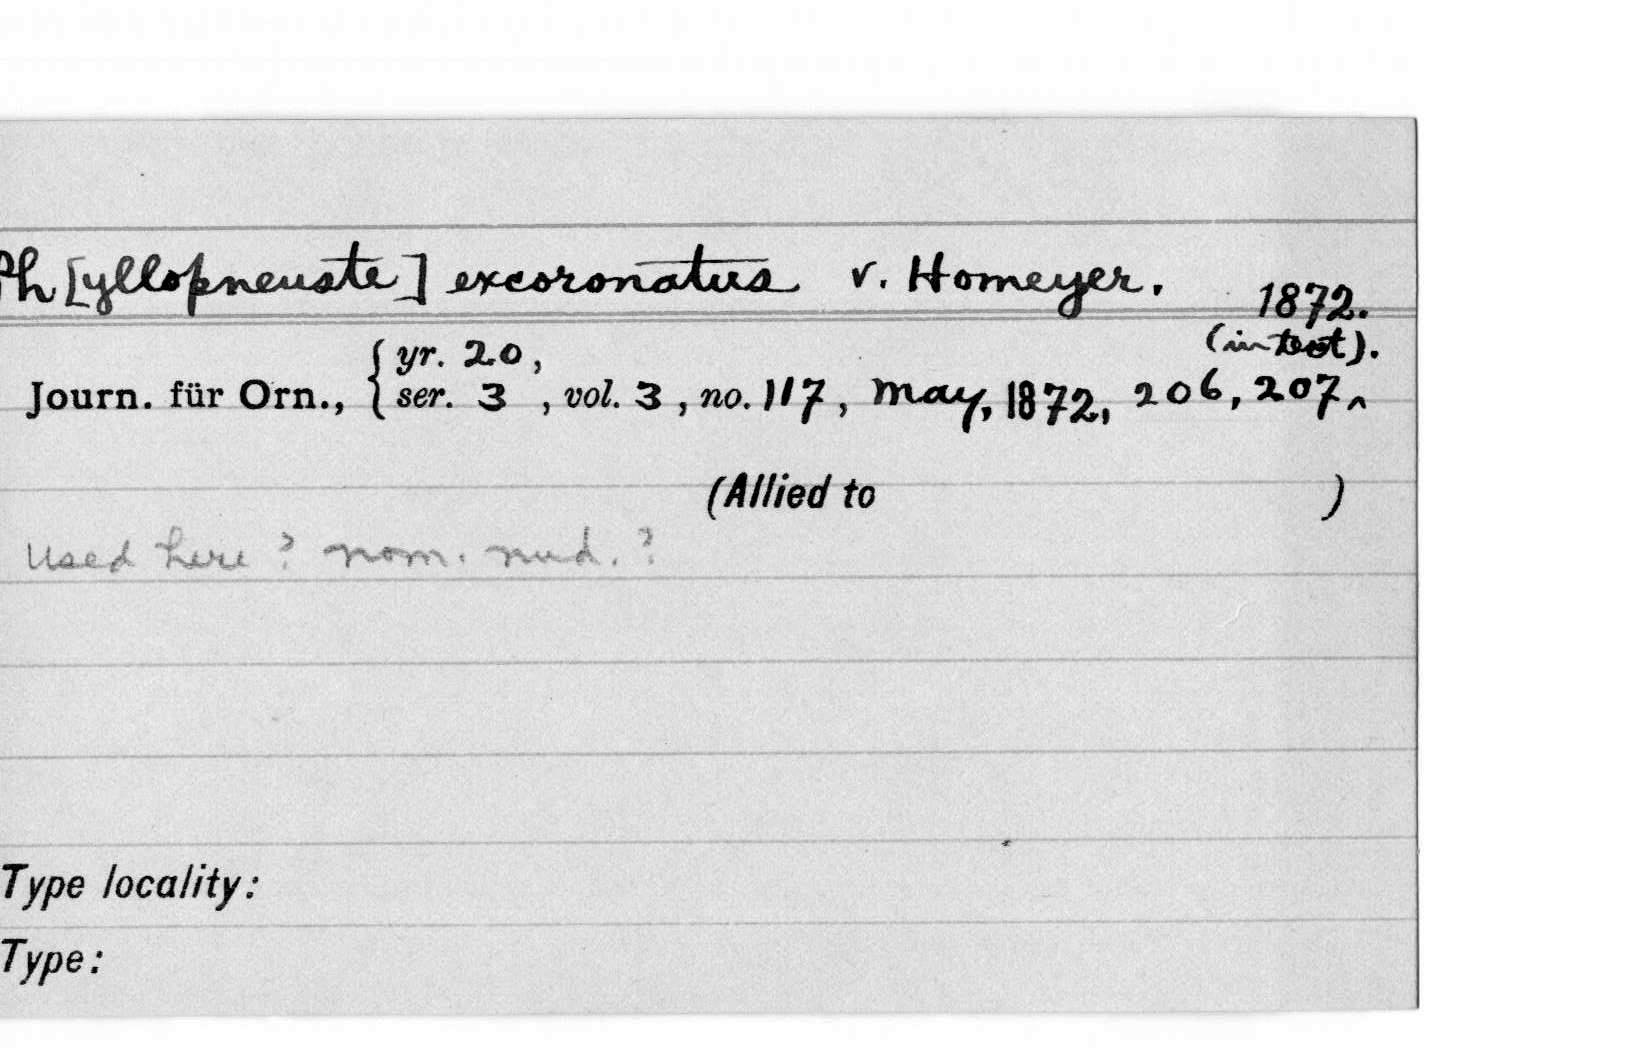 Ph[yllopneuste] excoronatus v. Homeyer.
1872.
(in text).
yr. 20,
Journ. für Orn., ser. 3, vol. 3, no. 117, May, 1872, 206, 207 ^
(Allied to )
Used here? nom. nud.?
Type locality:
Type: